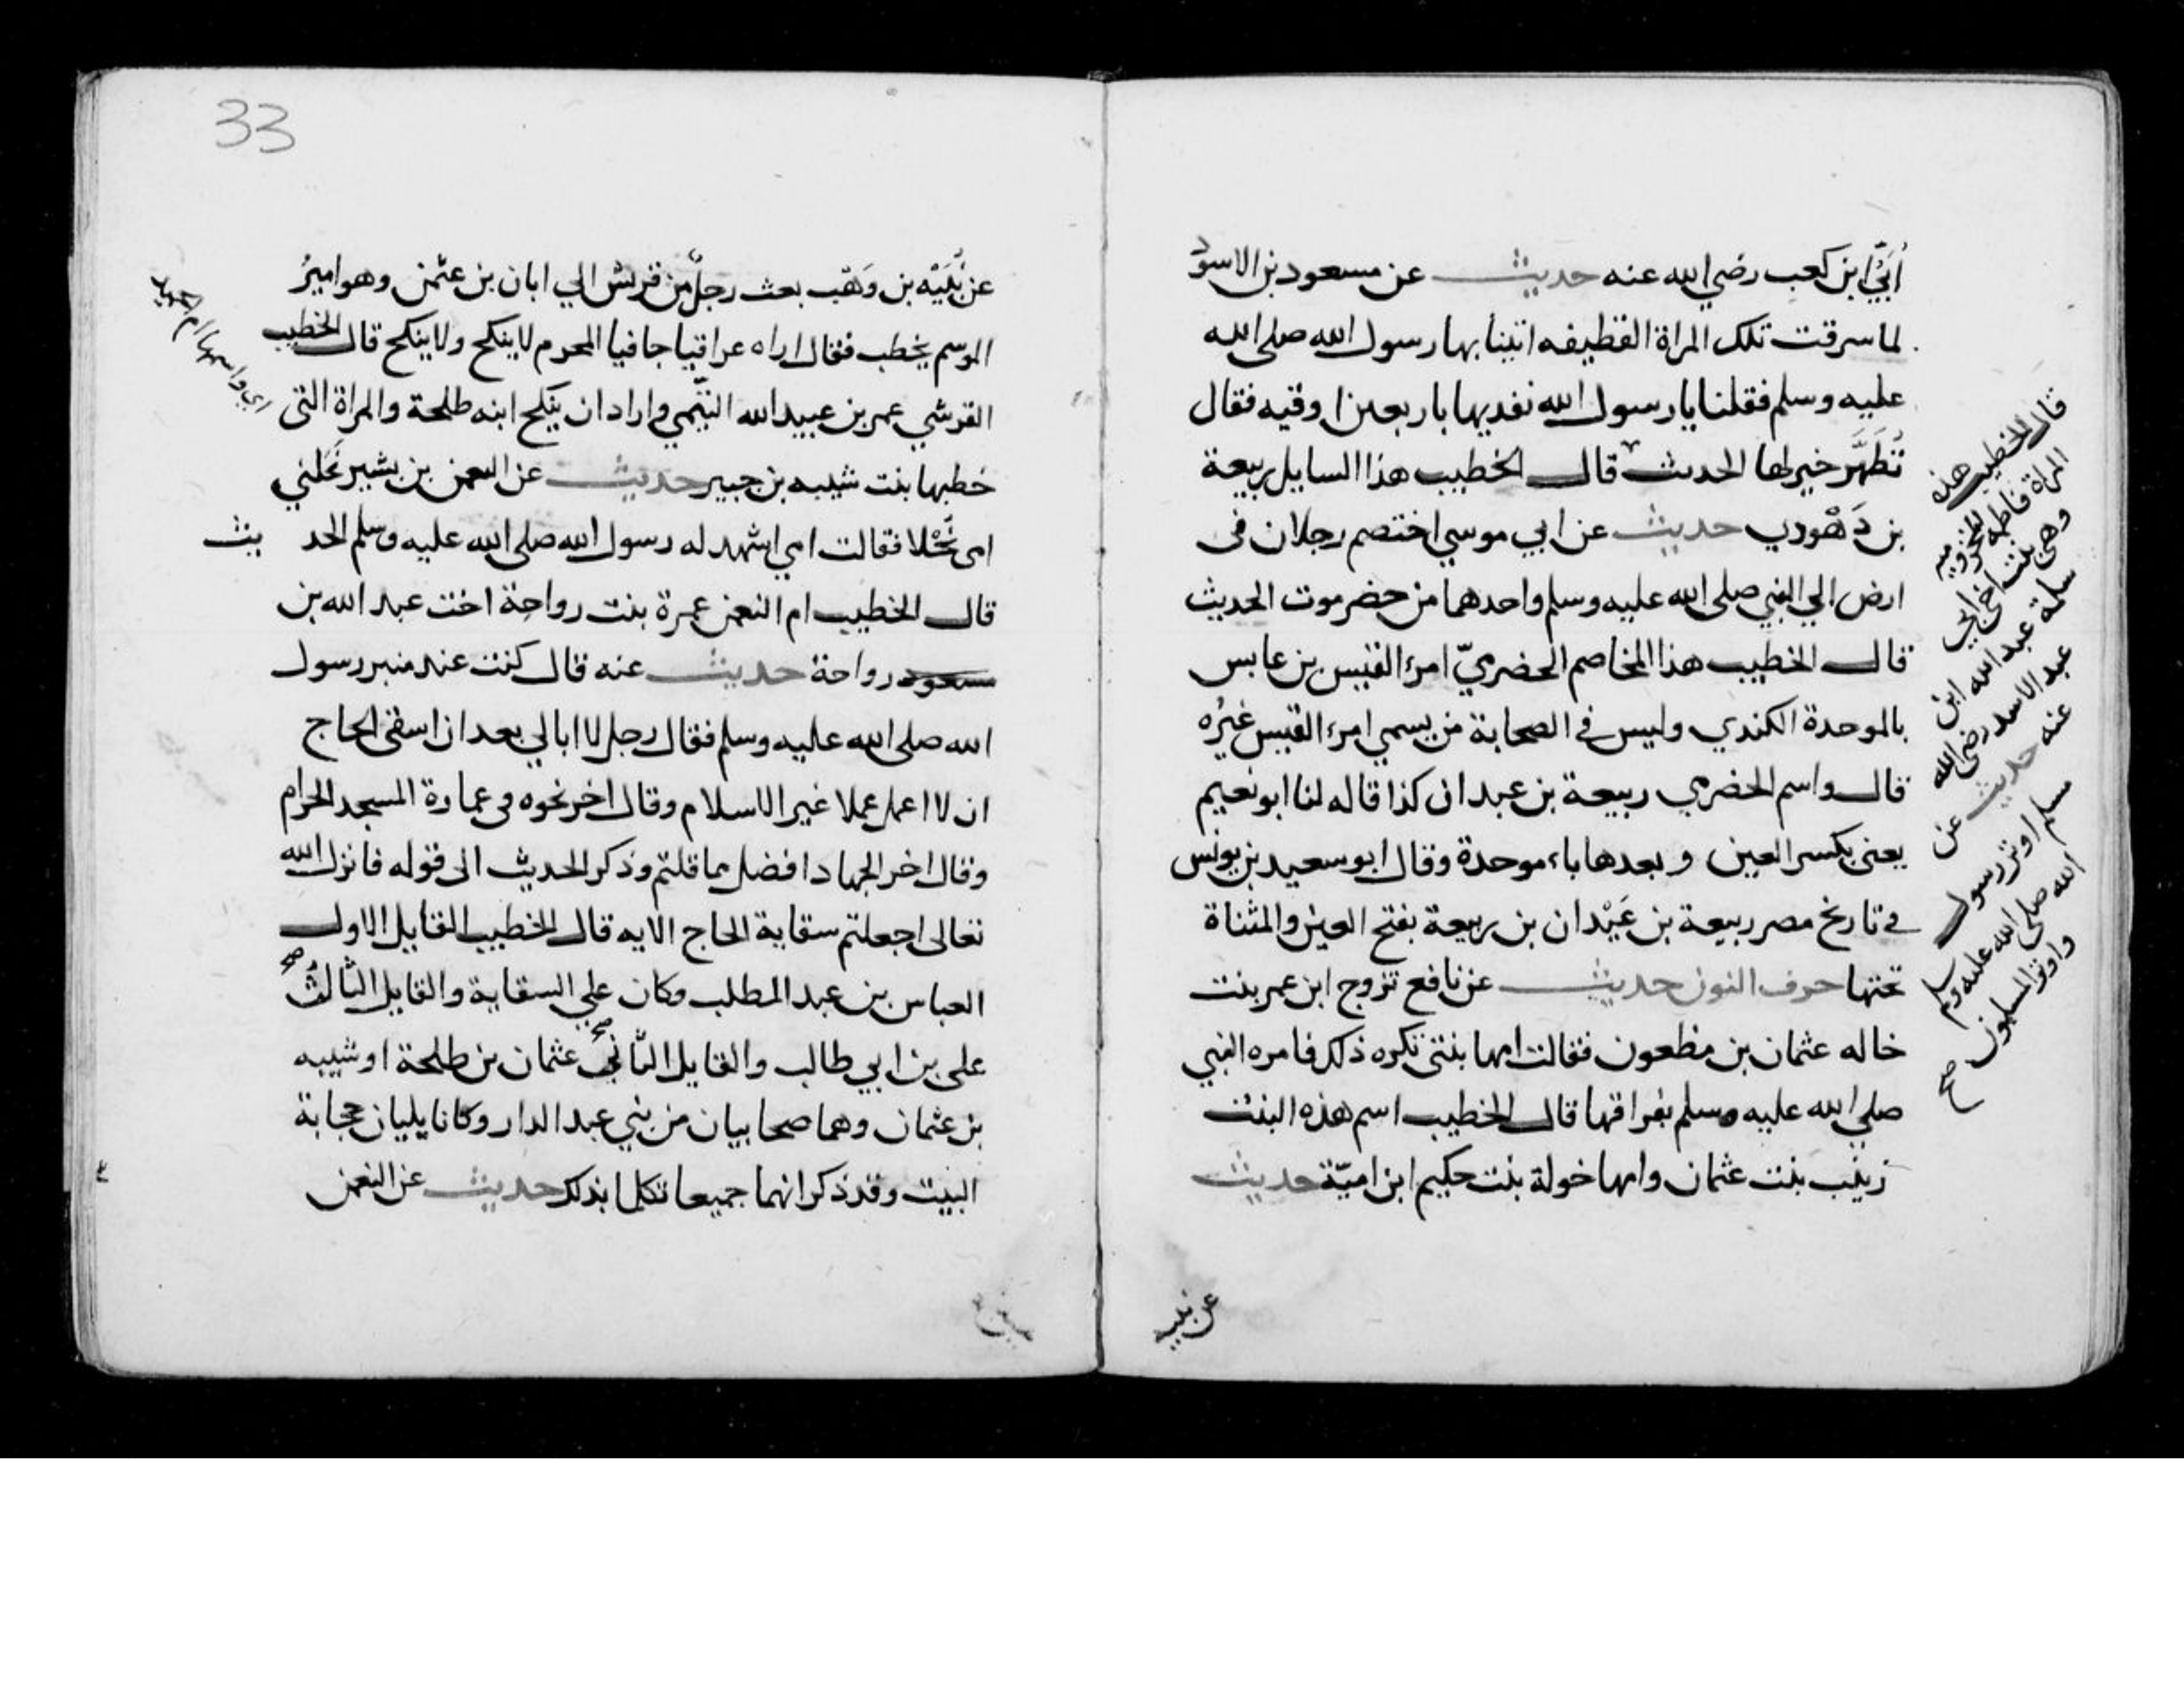 أُبَيّ ابن كعب رضي الله عنه حديث عن مسعود بن الاسود
لما سرقت تلك المراة القطيفه اتينا بها رسول الله صلى الله
عليه وسلم فقلنا يا رسول الله نفديها باربعين اوقيه فقال
تُطَهَّر خير لها الحديث قال الخطيب هذا السايل ربيعة
بن دَهْودي حديث عن ابي موسي اختصم رجلان فى
ارض الي النبي صلى الله عليه وسلم واحدهما من حضرموت الحديث
قال الخطيب هذا المخاصم الحضرميّ امرء القيس بن عابس
بالموحدة الكندي وليس في الصحابة من يسمي امرء القيس غيرُه
قال واسم الحضرمي ربيعة بن عبدان كذا قاله لنا ابو نعيم
يعنى بكسر العين وبعدها باء موحدة وقال ابو سعيد بن يونس
في تاريخ مصر ربيعة بن عَيْدان بن ربيعة بفتح العين والمثناة
تحتها حرف النون حديث عن نافع تزوج ابن عمر بنت
خاله عثمان بن مظعون فقالت امها بنتى تكره ذلك فامره النبي
صلي الله عليه وسلم بفراقها قال الخطيب اسم هذه البنت
زينب بنت عثمان وامها خولة بنت حكيم ابن اميّة حديث
عن نبيه
قال الخطيب هذه
المراة فاطمه المخزوميه
وهى بنت اخي ابي
سلمة عبد الله ابن
عبد الاسد رضي الله
عنه حديث عن
مسلم اوتر رسول
الله صلى الله عليه وسلم
واوتر المسلمون صح
33
عن نُبَيْه بن وَهْب بعث رجلٌ من قريش الي ابان بن عثمن وهو اميرُ
الموسم يخطب فقال اراه عراقيا جافيا المحرم لا ينكح ولا ينكح قال الخطيب
القرشي عمر بن عبيد الله التيّمي واراد ان يَنكح ابنه طلحة والمراة التى
خطبها بنت شيبه بن جبير حديث عن النعمن بن بشير نَحَلني
امى نُحْلا فقالت امي اشهد له رسول الله صلى الله عليه وسلم الحد يث
قال الخطيب ام النعمن عمرة بنت رواحة اخت عبد الله بن
مسعود رواحة حديث عنه قال كنت عند منبر رسول
الله صلى الله عليه وسلم فقال رجل لا ابالي بعد ان اسقى الحاج
ان لا اعمل عملا غير الاسلام وقال اخر نحوه فى عمارة المسجد الحرام
وقال اخر الجهاد افضل مما قلتم وذكر الحديث الى قوله فانزل الله
تعالى اجعلتم سقاية الحاج الايه قال الخطيب القايل الاول
العباس بن عبد المطلب وكان علي السقاية والقايل الثالث صح
على بن ابي طالب والقايل الثانى صح عثمان بن طلحة او شيبه
بن عثمان وهما صحابيان من بني عبد الدار وكانا يليان حجابة
البيت وقد ذكر انهما جميعا تكلما بذلك حديث عن النعمن